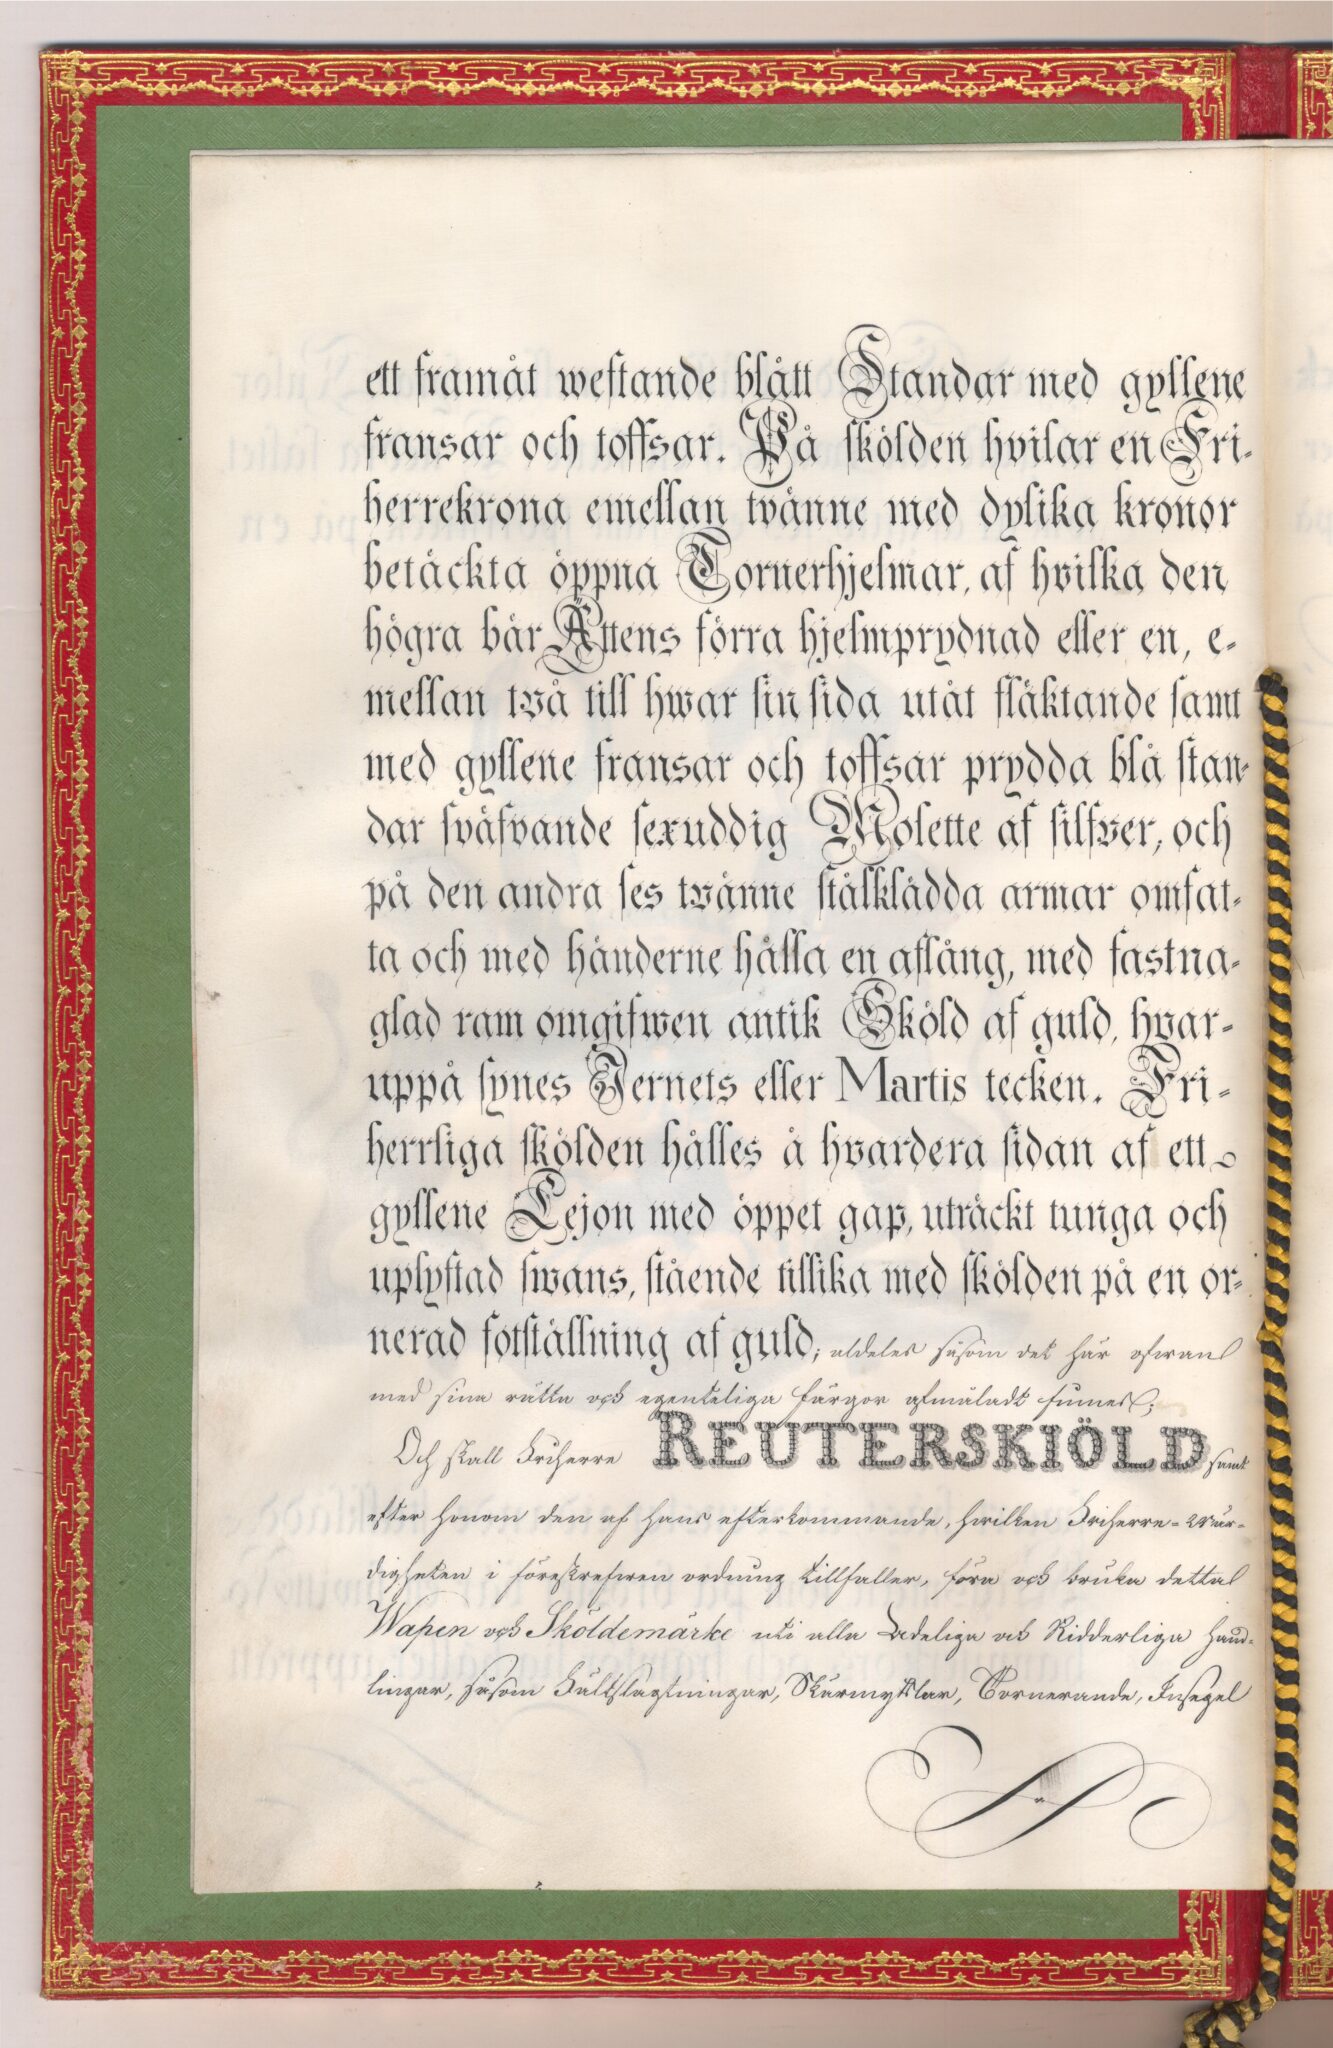 ett framåt westande blått Standar med gyllene
fransar och toffsar. På skölden hvilar en Fri-
herrekrona emellan tvänne med dylika kronor
betäckta öppna Tornerhjelmar, af hvilka den
högra bär Ättens förra hjelmprydnad eller en, e-
mellan två till hwar sin sida utåt fläktande samt
med gyllene fransar och toffsar prydda blå stan-
dar sväfvande sexuddig Molette af silfver, och
på den andra ses tvänne stålklädda armar omfat-
ta och med händerne hålla en aflång, med fastna-
glad ram omgifwen antik Sköld af guld, hvar-
uppå synes Jernets eller Martis tecken. Fri-
herrliga skölden hålles å hvardera sidan af ett
gyllene Lejon med öppet gap, uträckt tunga och
uplyftad swans, stående tillika med skölden på en or-
nerad fotställning af guld; aldeles såsom det här ofwan
med sina rätta och egenteliga färgor afmåladt finnes;
Och skall Friherre REUTERSKIÖLD samt
efter honom den af hans efterkommande, hwilken Friherre-wär-
digheten i föreskrefwen ordning tillfaller, föra och bruka detta
Wapen och Sköldemärke uti alla Adeliga och Ridderliga Hand-
lingar, såsom Fältslagtningar, Skärmytslar, Tornerande, Insegel